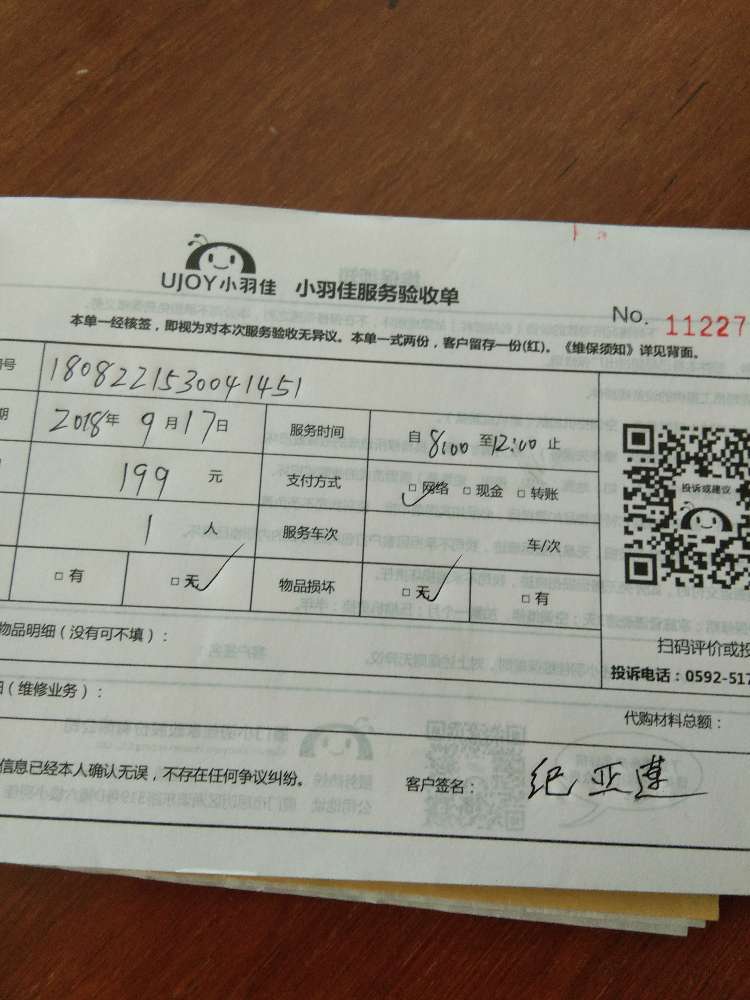 UJOY小羽佳 小羽佳服务验收单
No. 11227
本单一经核签，即视为对本次服务验收无异议。本单一式两份，客户留存一份(红)。《维保须知》详见背面。
号 1808221530041451
期 2018年9月17日 服务时间 自8:00至12:00止
199 元 支付方式 □网络 □现金 □转账
1 人 服务车次 车/次
□有 □无 物品损坏 □无 □有
投诉或建议
物品明细（没有可不填）：
扫码评价或投
投诉电话：0592-517
（维修业务）：
代购材料总额：
信息已经本人确认无误，不存在任何争议纠纷。
客户签名： 纪亚莲